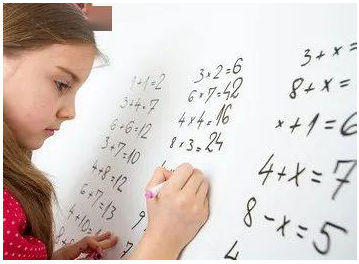 1+1=2
3+4=7
6+6=12
3+7=10
4+8=12
6+7=13
4+10=
3×2=6
6×7=42
4×4=16
8×3=24
3+x=
8+x=
x+1=6
4+x=7
8-x=5